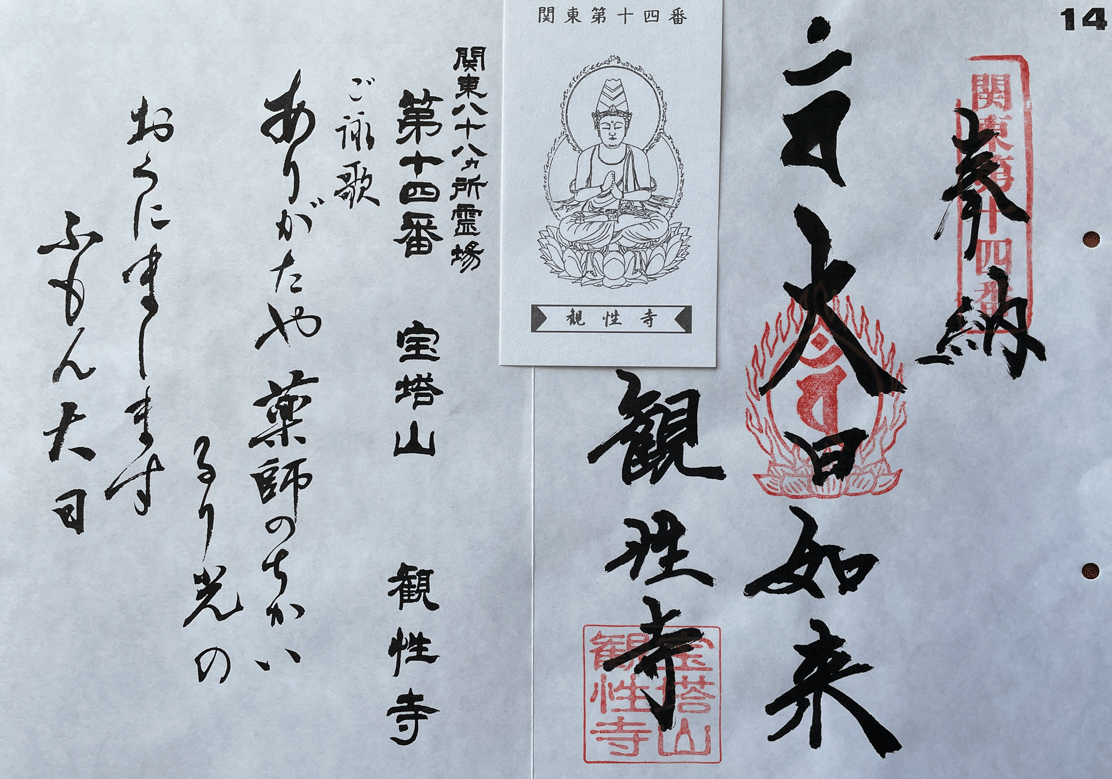 14
関東第十四番
奉納
大日如来
観性寺
宝塔山
観性寺
関東第十四番
観性寺
関東八十八ヵ所霊場
第十四番 宝塔山 観性寺
ご詠歌
ありがたや 薬師のちかい
るり光の
おうにまします
ふもん大日